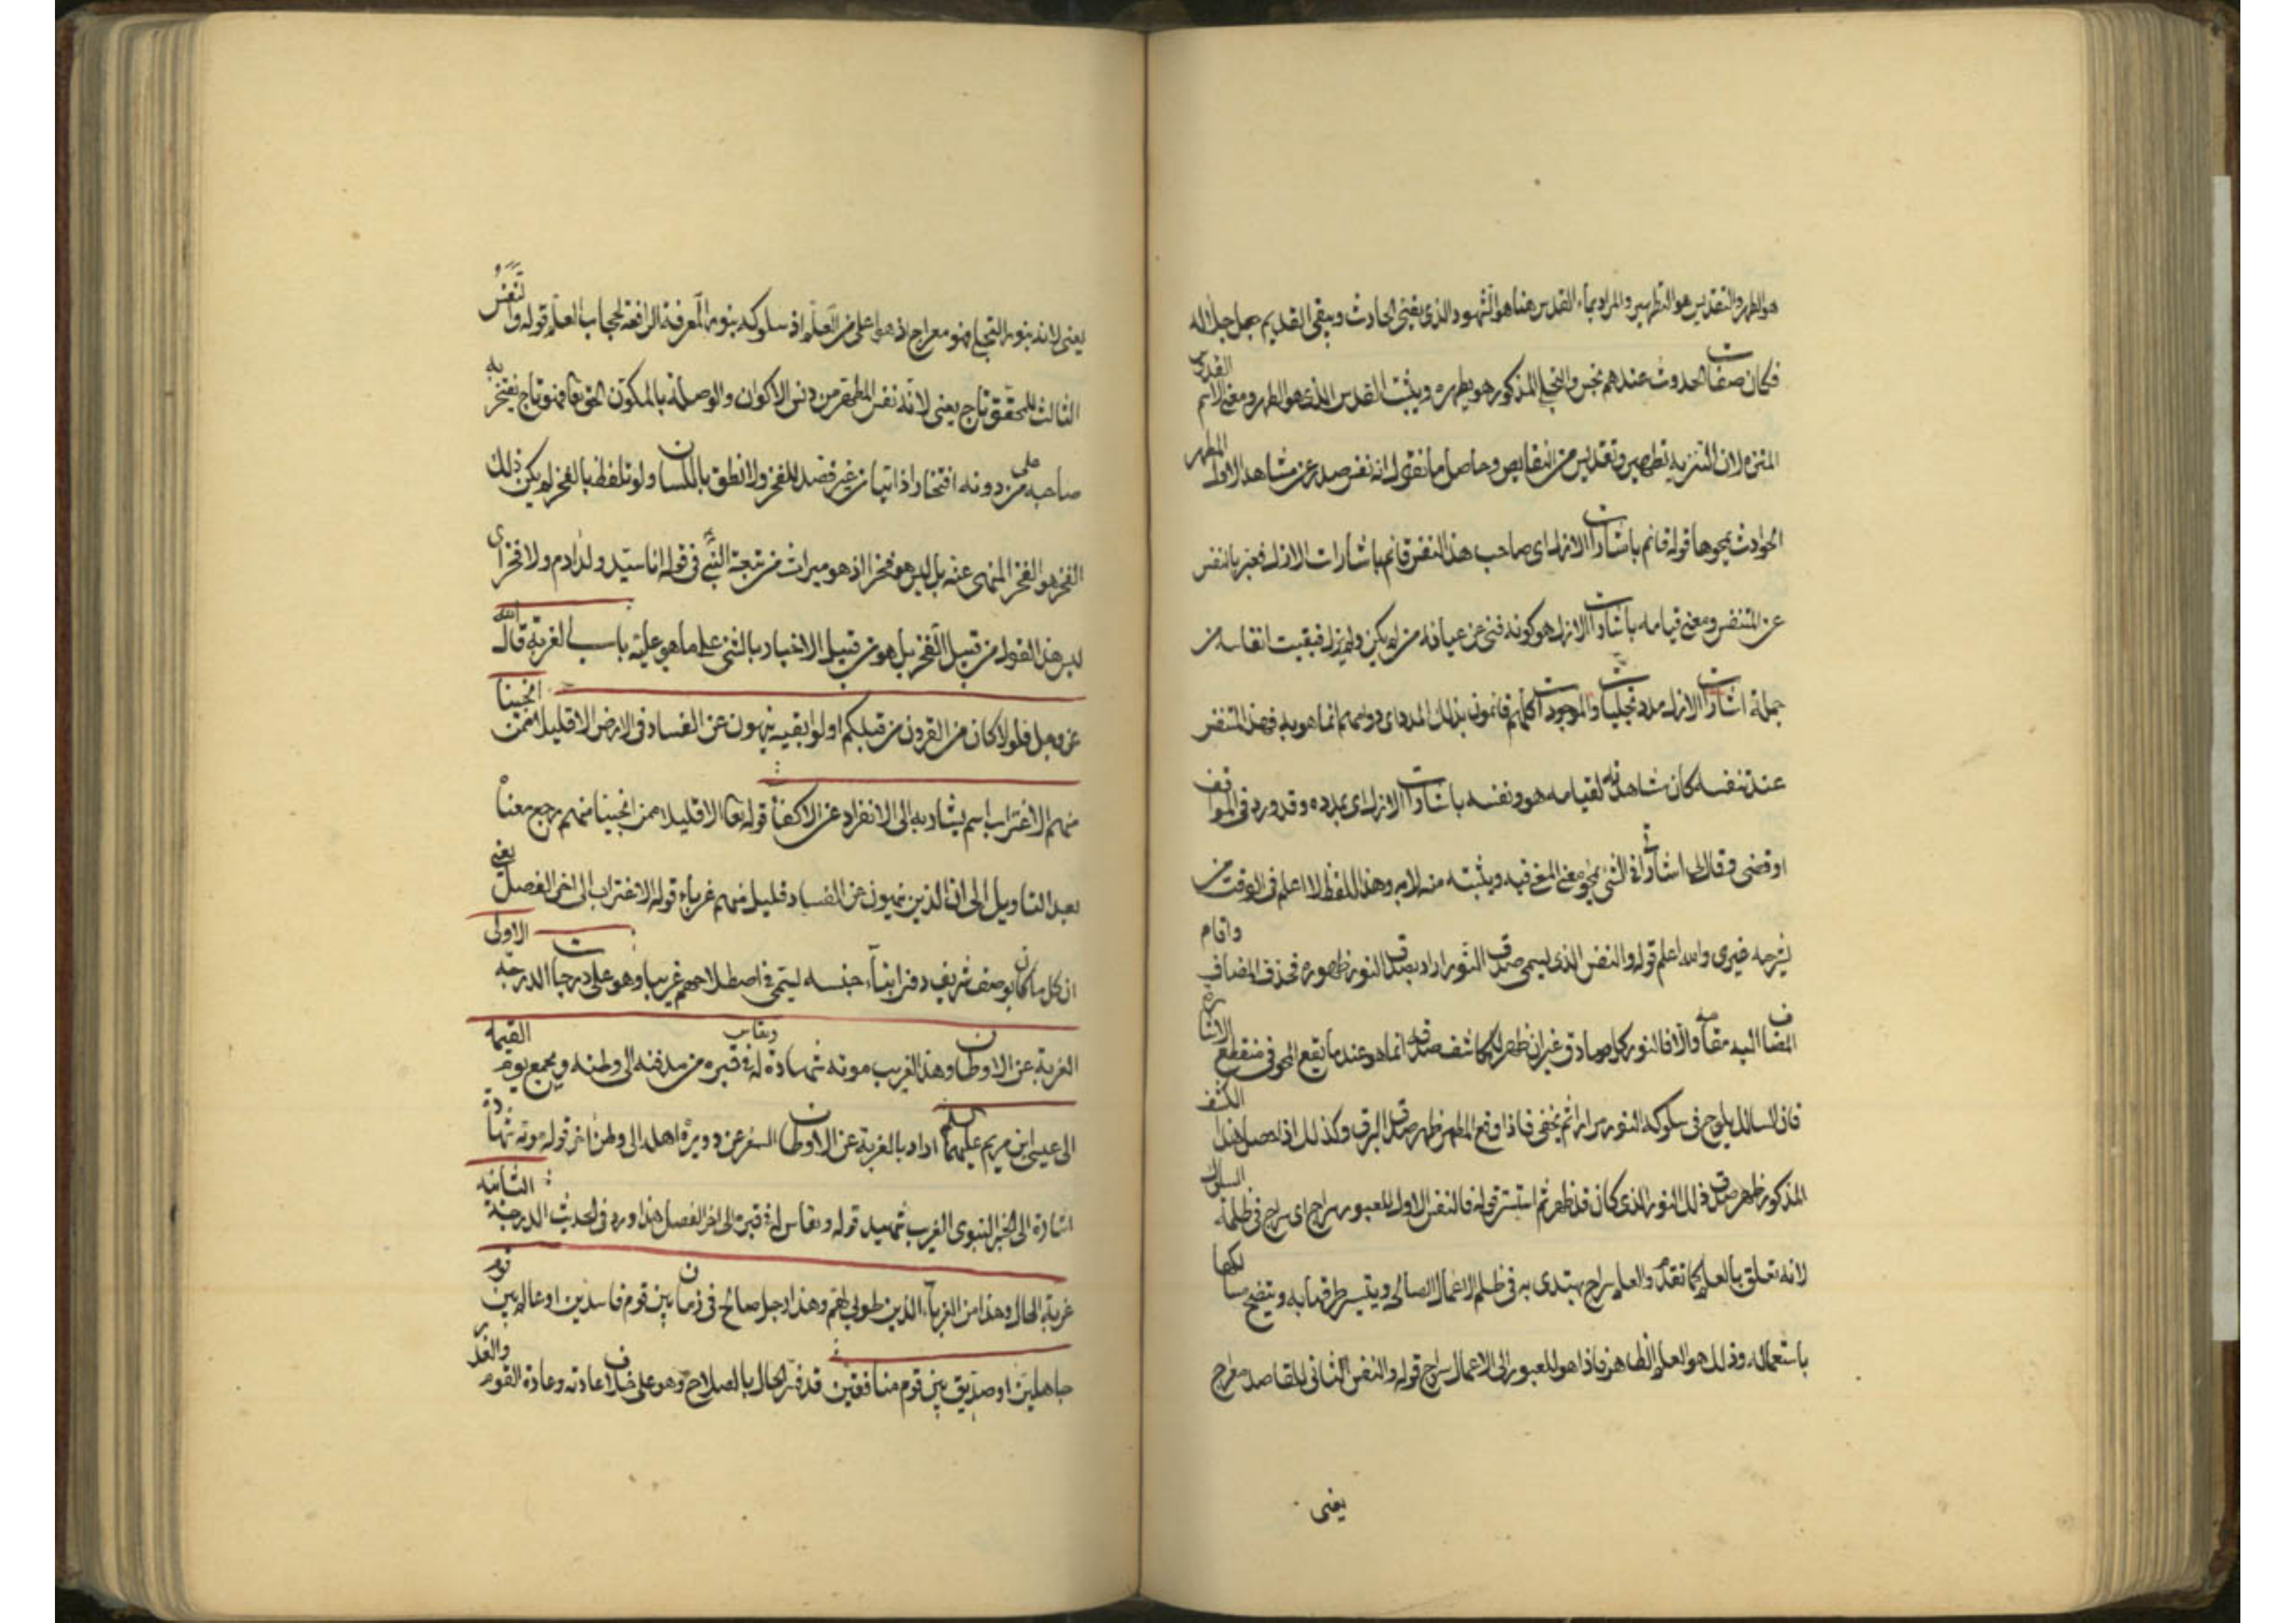 هو الطهر والتقديس هو التطهير والمراد بماء القدس هنا هو الشهود الذي يفنى الحادث ويبقى القديم جل جلاله
فكان صفات الحدوث عندهم نجس والتجلي المذكور هو يطهره ويثبت القدس الذى هو الطهر ومعنى الاسم القدوس
المنزه لان التنزيه تطهير وتقديس من النقايص وحاصل ما نقول انه نفس صدر عن مشاهد الاول المطهر
الحوادث بمحوها قوله قائم باشارات الازل اى صاحب هذا النفس قائم باشارات الازل فعبر بالنفس
عن المتنفس ومعنى قيامه باشارات الازل هو كونه فنى عن عيانه من لم يكن ولم يزل فبقيت انفاسه من
جملة اشارات الازل مدد تجليات والموجودات كلهم قائمون بذلك المدد اى دواسهم انما هو به فهذا المتنفس
عند تنفسه كان شاهد لقيامه هو ونفسه باشارات الازل اى بمدده وقد ورد فى المواقف
اوقفنى وقال لى اشارات فى الشئ تمحو معنى المعنى فيه ويثبته منه لا به وهذا اللفظ لا اعلم فى الوقت من
يشرحه غيرى والله اعلم قوله والنفس الذى يسمى صدق النور اراد بصدق النور ظهوره فحذف المضاف واقام
المضاف اليه مقامه والا فالنور كله صادق غير ان ظهر للمكاشف صدقه انما هو عند ما يقع المحو فى منقطع الاشارة
فان السالك يلوح فى سلوكه النور مرارا ثم يخفى فاذا وقع المطر ظهر صدق البرق وكذلك اذا حصل هذا الكشف
المذكور ظهر صدق ذلك النور الذى كان قد ظهر ثم استتر قوله فالنفس الاول للعبور سراج اى سراج فى ظلمة السلوك
لانه تعلق بالعلم كما تقدم والعلم سراج يهتدى به فى ظلم الاعمال الصالحة ويتيسر طرقها به وتتضح مسالكها
باستعماله وذلك هو العلم الظاهر فاذا هو للعبور الى الاعمال سراج قوله والنفس الثانى للقاصد معراج
يعنى
يعنى لانه بنور التجلى فهو معراج اذ هو اعلى من العلم اذ سلوكه بنور المعرفة الرافعة لحجاب العلم قوله والنفس
الثالث للمحقق تاج يعنى لانه نفس المطهر من دنس الاكوان والوصلة بالمكون الحق تعا فهو تاج يفتخر به
صاحبه على من دونه افتخارا ذاتيا من غير قصد للفخر ولا نطق باللسان ولو تلفظ بالفخر لم يكن ذلك
الفخر هو الفخر المنهى عنه بل ليس هو فخرا اذ هو ميراث من نتيجة النبى فى قوله انا سيد ولد ادم ولا فخر اى
ليس هذا القول من قبيل الفخر بل هو من قبيل الاخبار بالشئ على ما هو عليه باب الغربة قال الله
عز وجل فلولا كان من القرون من قبلكم اولوا بقية ينهون عن الفساد فى الارض الا قليلا ممن انجينا
منهم الاغتراب اسم يشار به الى الانفراد عن الاكفاء قوله تعا الا قليلا ممن انجينا منهم يرجع معناه
بعد التاويل الى ان الذين ينهون عن الفساد قليل منهم غرباء قوله الاغتراب الى اخر الفصل يعنى
ان كل ما كان بوصف شريف دون ابناء جنسه ليسمى فى اصطلاحهم غريبا وهو على درجات الدرجة الاولى
الغربة عن الاوطان وهذا الغريب موته شهادة ويقاس له فى قبره من مدفنه الى وطنه ويجمع يوم القيمة
الى عيسى ابن مريم عليهما السلم اراد بالغربة عن الاوطان السفر عن دويرة اهله الى وطن اخر قوله موته شهادة
اشارة الى الخبر النبوى الغريب شهيد قوله ويقاس له فى قبره الى اخر الفصل هذا ورد فى الحديث الدرجة الثانية
غربة الحال وهذا من الغرباء الذين طوبى لهم وهذا رجل صالح فى زمان بين قوم فاسدين او عالم بين قوم
جاهلين او صديق بين قوم منافقين قد فسر الحال بالصلاح وهو على خلاف عادته وعادة القوم